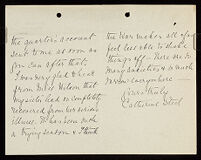 the quarter's account
sent to me as soon as
you can after that.
I was very glad to hear
from Miss Wilson that
my sister had so completely
recovered from her serious
illness. It has been such
a trying season & I think
the war makes all of us
feel less able to shake
things off. There are so
many anxieties & so much
sorrow everywhere
Yours truly
Catherine Steel